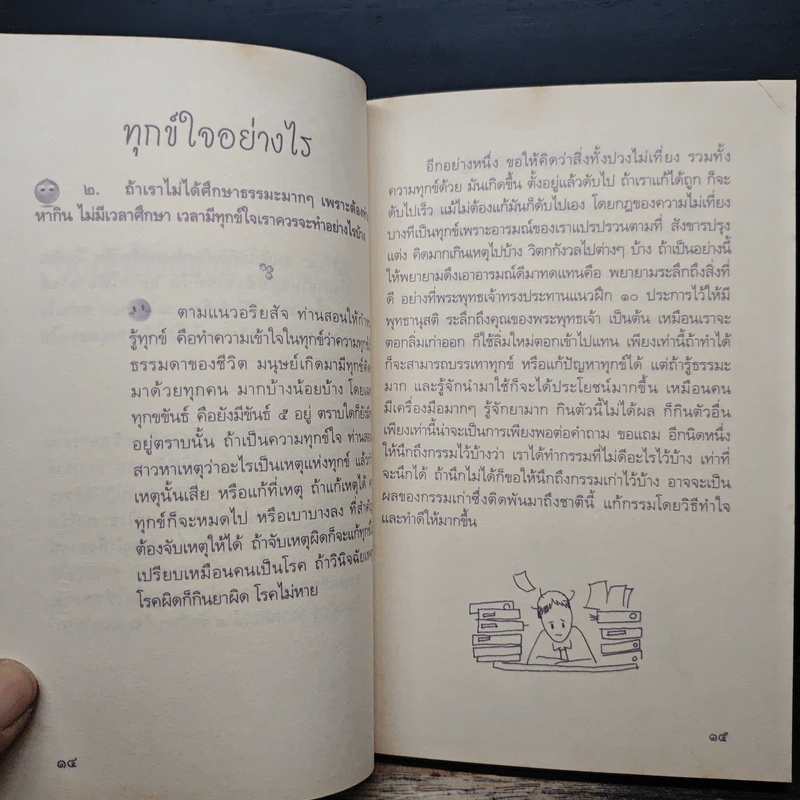 ทุกข์ใจอย่างไร
๒. ถ้าเราไม่ได้ศึกษาธรรมะมากๆ เพราะต้องทำ
หากิน ไม่มีเวลาศึกษา เวลามีทุกข์ใจเราควรจะทำอย่างไรบ้าง
ตามแนวอริยสัจ ท่านสอนให้กำ
รู้ทุกข์ คือทำความเข้าใจในทุกข์ว่าความทุกข์
ธรรมดาของชีวิต มนุษย์เกิดมามีทุกข์ติด
มาด้วยทุกคน มากบ้างน้อยบ้าง โดยเฉ
ทุกขขันธ์ คือยังมีขันธ์ ๕ อยู่ ตราบใดก็ยัง
อยู่ตราบนั้น ถ้าเป็นความทุกข์ใจ ท่านสอ
สาวหาเหตุว่าอะไรเป็นเหตุแห่งทุกข์ แล้ว
เหตุนั้นเสีย หรือแก้ที่เหตุ ถ้าแก้เหตุได้
ทุกข์ก็จะหมดไป หรือเบาบางลง ที่สำคั
ต้องจับเหตุให้ได้ ถ้าจับเหตุผิดก็จะแก้ทุกข์
เปรียบเหมือนคนเป็นโรค ถ้าวินิจฉัยเหตุ
โรคผิดก็กินยาผิด โรคไม่หาย
๑๔
อีกอย่างหนึ่ง ขอให้คิดว่าสิ่งทั้งปวงไม่เที่ยง รวมทั้ง
ความทุกข์ด้วย มันเกิดขึ้น ตั้งอยู่แล้วดับไป ถ้าเราแก้ได้ถูก ก็จะ
ดับไปเร็ว แม้ไม่ต้องแก้มันก็ดับไปเอง โดยกฎของความไม่เที่ยง
บางทีเป็นทุกข์เพราะอารมณ์ของเราแปรปรวนตามที่ สังขารปรุง
แต่ง คิดมากเกินเหตุไปบ้าง วิตกกังวลไปต่างๆ บ้าง ถ้าเป็นอย่างนี้
ให้พยายามดึงเอาอารมณ์ดีมาทดแทนคือ พยายามระลึกถึงสิ่งที่
ดี อย่างที่พระพุทธเจ้าทรงประทานแนวฝึก ๑๐ ประการไว้ให้มี
พุทธานุสติ ระลึกถึงคุณของพระพุทธเจ้า เป็นต้น เหมือนเราจะ
ตอกลิ่มเก่าออก ก็ใช้ลิ่มใหม่ตอกเข้าไปแทน เพียงเท่านี้ถ้าทำได้
ก็จะสามารถบรรเทาทุกข์ หรือแก้ปัญหาทุกข์ได้ แต่ถ้ารู้ธรรมะ
มาก และรู้จักนำมาใช้ก็จะได้ประโยชน์มากขึ้น เหมือนคน
มีเครื่องมือมากๆ รู้จักยามาก กินตัวนี้ไม่ได้ผล ก็กินตัวอื่น
เพียงเท่านี้น่าจะเป็นการเพียงพอต่อคำถาม ขอแถม อีกนิดหนึ่ง
ให้นึกถึงกรรมไว้บ้างว่า เราได้ทำกรรมที่ไม่ดีอะไรไว้บ้าง เท่าที่
จะนึกได้ ถ้านึกไม่ได้ก็ขอให้นึกถึงกรรมเก่าไว้บ้าง อาจจะเป็น
ผลของกรรมเก่าซึ่งติดพันมาถึงชาตินี้ แก้กรรมโดยวิธีทำใจ
และทำดีให้มากขึ้น
๑๕